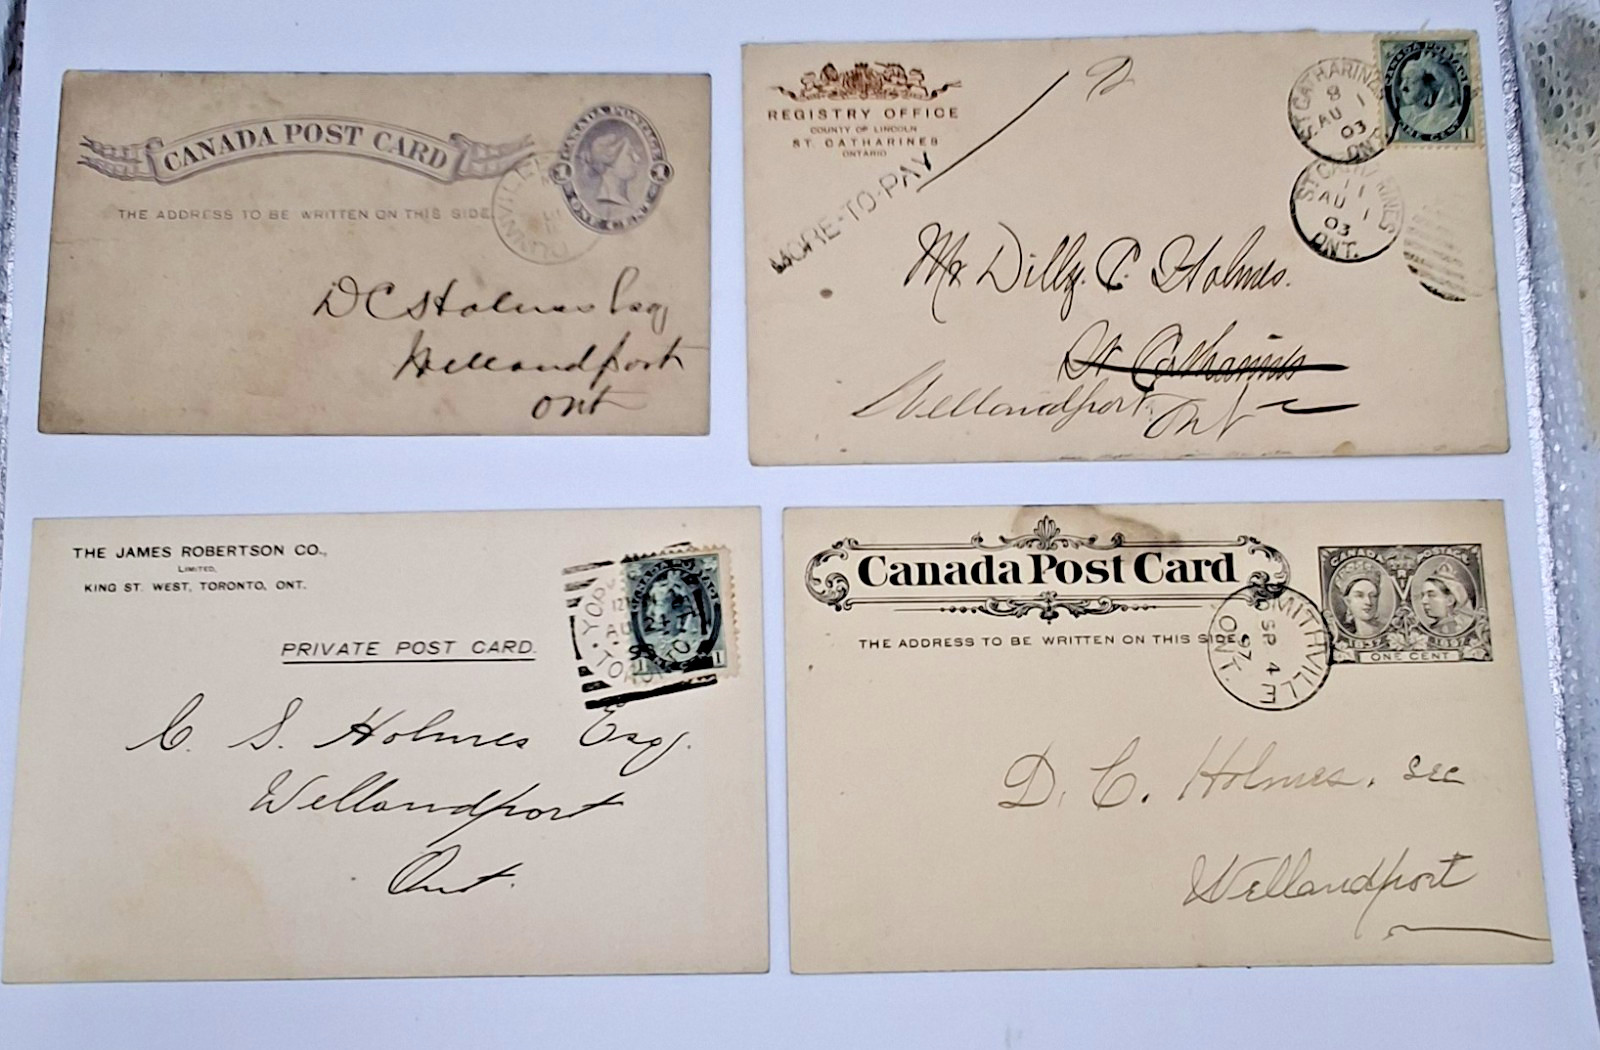 CANADA POST CARD
CANADA POSTAGE
ONE CENT
THE ADDRESS TO BE WRITTEN ON THIS SIDE.
DUNNVILLE
D C Holmes Esq
Wellandport
Ont
REGISTRY OFFICE
COUNTY OF LINCOLN
ST. CATHARINES
ONTARIO
MORE-TO-PAY
2
ST. CATHARINES
8
AU 1
03
ONT.
CANADA POSTAGE
ONE CENT
1
ST. CATHARINES
11
AU 1
03
ONT.
Mr Dilly. C. Holmes.
St Catharines
Wellandport Ont
THE JAMES ROBERTSON CO.,
LIMITED,
KING ST. WEST, TORONTO, ONT.
PRIVATE POST CARD.
AU
24
TORONTO
1
C. S. Holmes Esq.
Wellandport
Ont.
Canada Post Card
CANADA POSTAGE
ONE CENT
THE ADDRESS TO BE WRITTEN ON THIS SIDE
SMITHVILLE
SP 4
97
ONT.
D. C. Holmes, sec
Wellandport